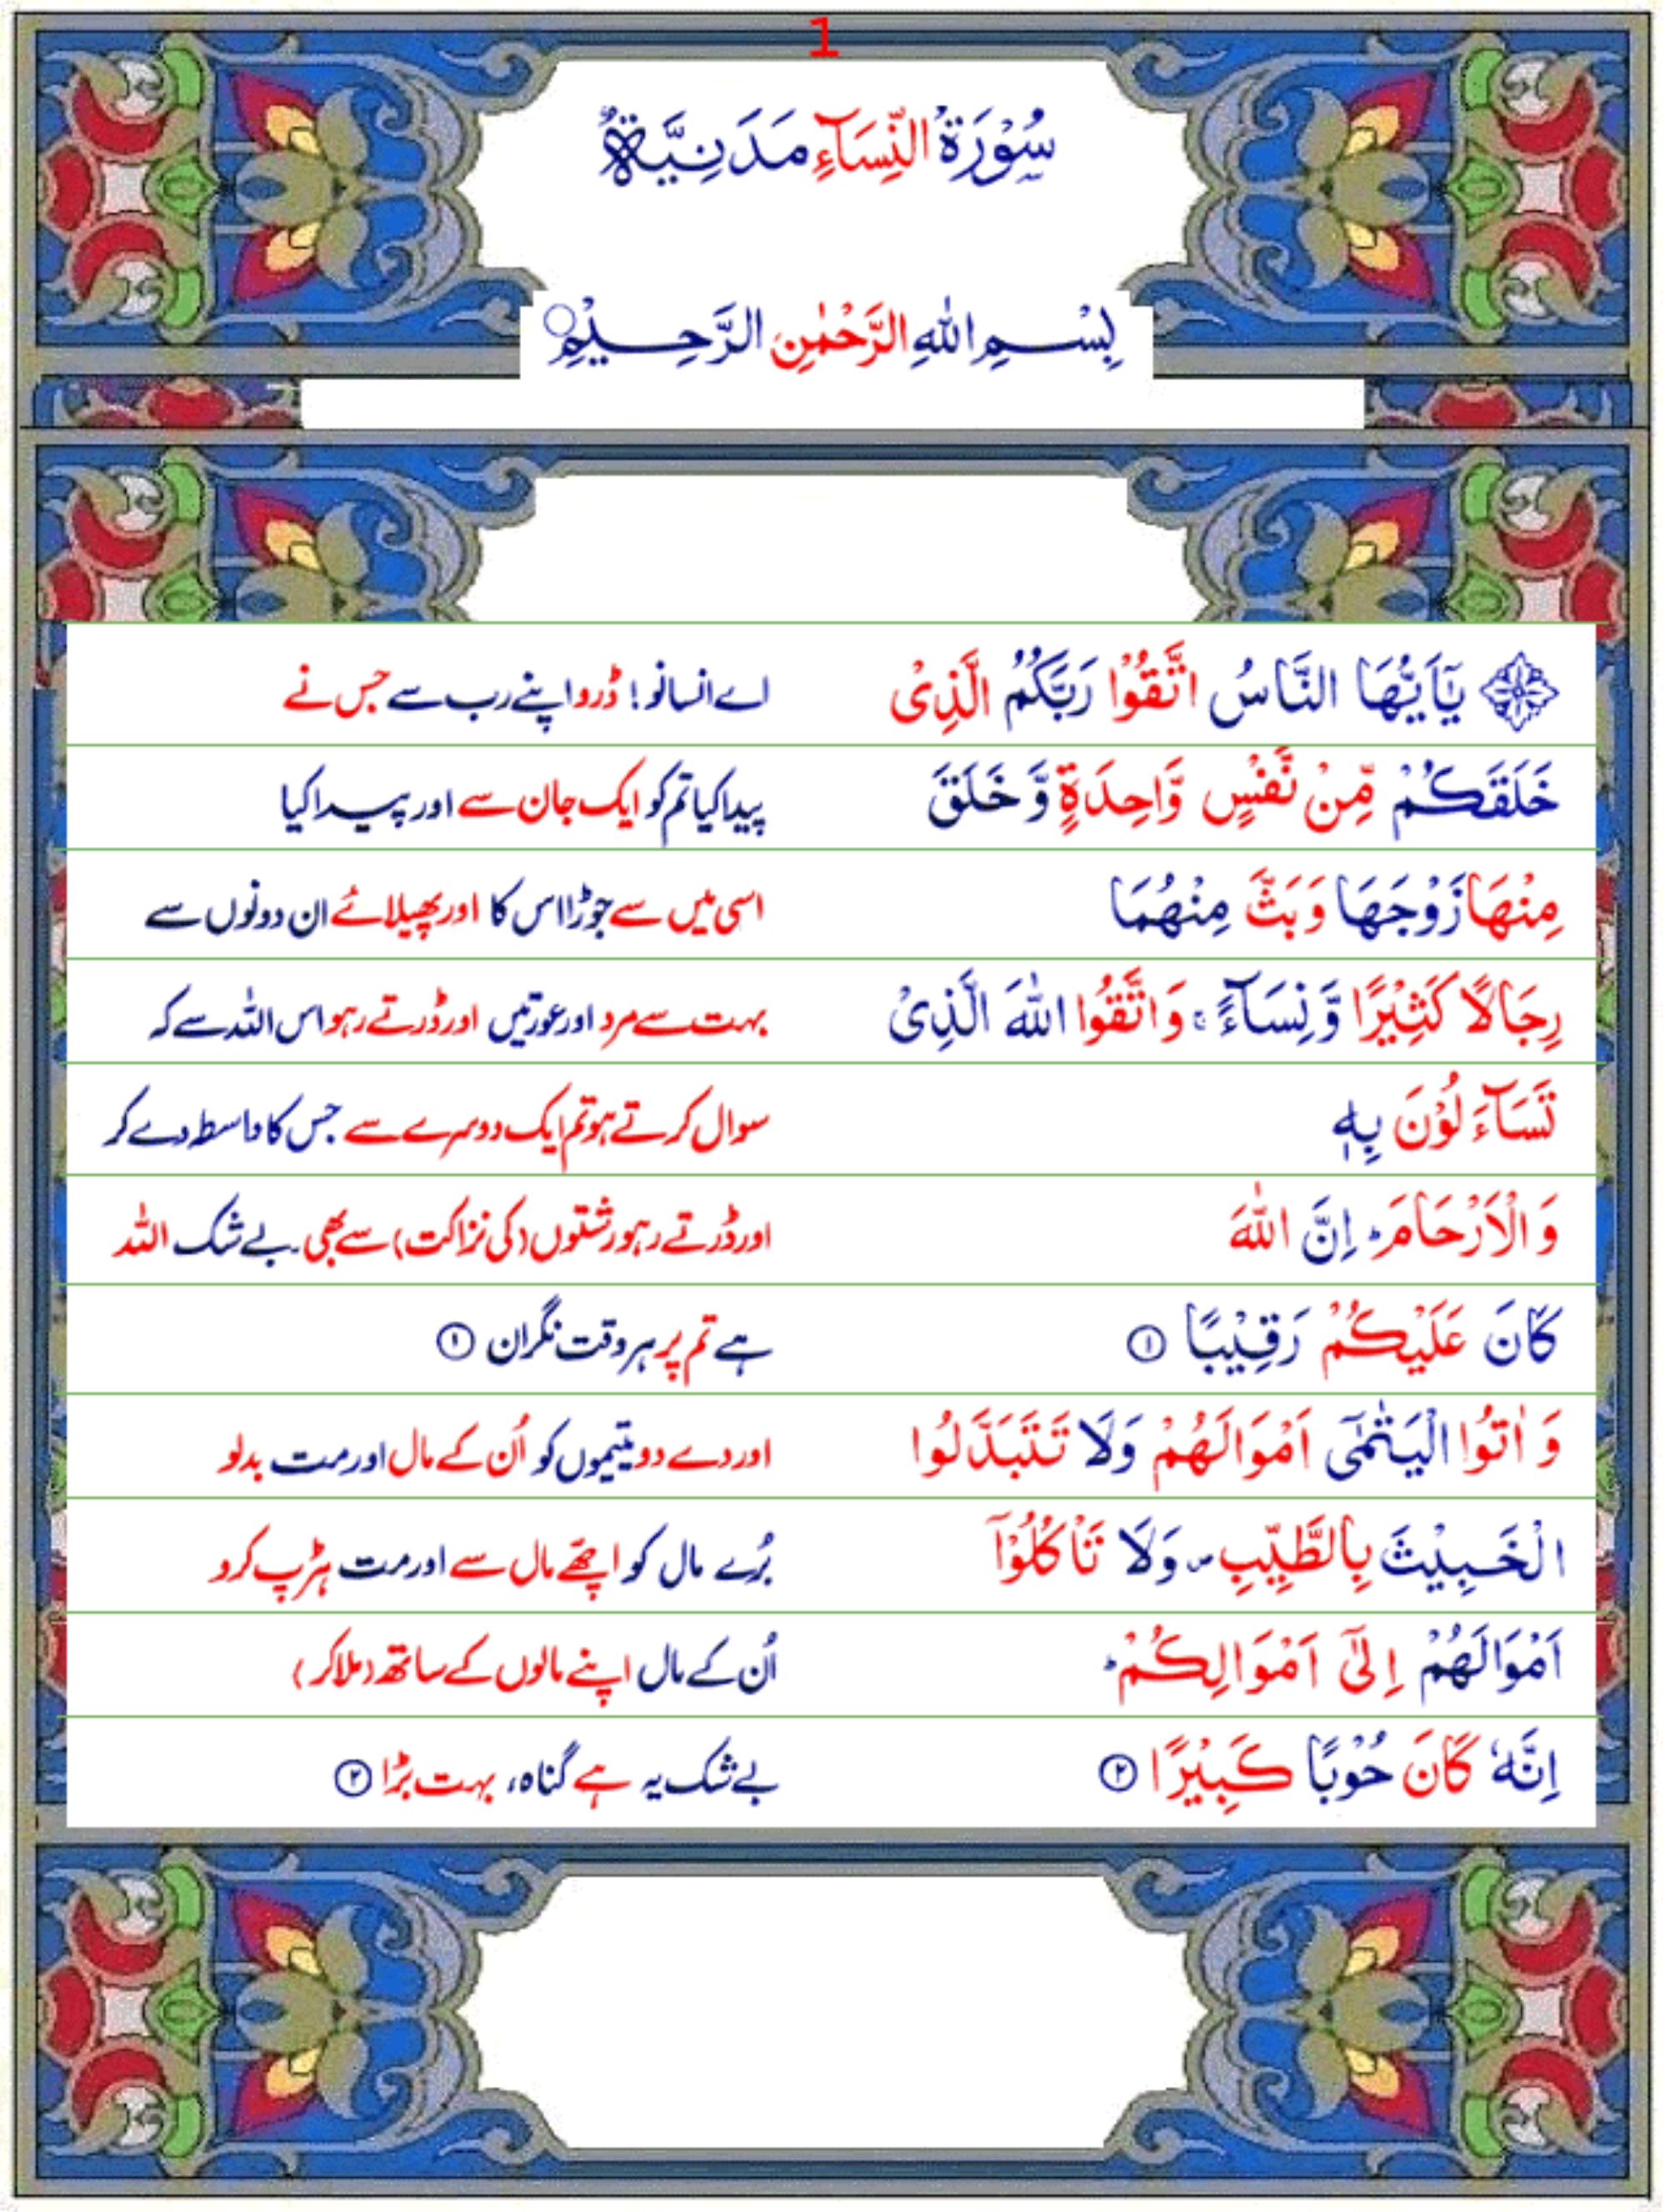 1
سُوْرَةُ النِّسَآءِ مَدَنِيَّةٌ
بِسْمِ اللهِ الرَّحْمٰنِ الرَّحِيْمِ
يٰۤاَيُّهَا النَّاسُ اتَّقُوْا رَبَّكُمُ الَّذِىْ اے انسانو! ڈرو اپنے رب سے جس نے
خَلَقَكُمْ مِّنْ نَّفْسٍ وَّاحِدَةٍ وَّ خَلَقَ پیدا کیا تم کو ایک جان سے اور پیدا کیا
مِنْهَا زَوْجَهَا وَ بَثَّ مِنْهُمَا اسی میں سے جوڑا اس کا اور پھیلائے ان دونوں سے
رِجَالًا كَثِيْرًا وَّ نِسَآءً ۚ وَ اتَّقُوا اللهَ الَّذِىْ بہت سے مرد اور عورتیں اور ڈرتے رہو اس اللہ سے کہ
تَسَآءَلُوْنَ بِهٖ سوال کرتے ہو تم ایک دوسرے سے جس کا واسطہ دے کر
وَ الْاَرْحَامَ ؕ اِنَّ اللهَ اور ڈرتے رہو رشتوں (کی نزاکت) سے بھی۔ بے شک اللہ
كَانَ عَلَيْكُمْ رَقِيْبًا ۱ ہے تم پر ہر وقت نگران ۱
وَ اٰتُوا الْيَتٰمٰٓى اَمْوَالَهُمْ وَلَا تَتَبَدَّلُوا اور دے دو یتیموں کو اُن کے مال اور مت بدلو
الْخَبِيْثَ بِالطَّيِّبِ ۪ وَلَا تَاْكُلُوْۤا بُرے مال کو اچھے مال سے اور مت ہڑپ کرو
اَمْوَالَهُمْ اِلٰٓى اَمْوَالِكُمْ ؕ اُن کے مال اپنے مالوں کے ساتھ (ملا کر)
اِنَّهٗ كَانَ حُوْبًا كَبِيْرًا ۲ بے شک یہ ہے گناہ، بہت بڑا ۲